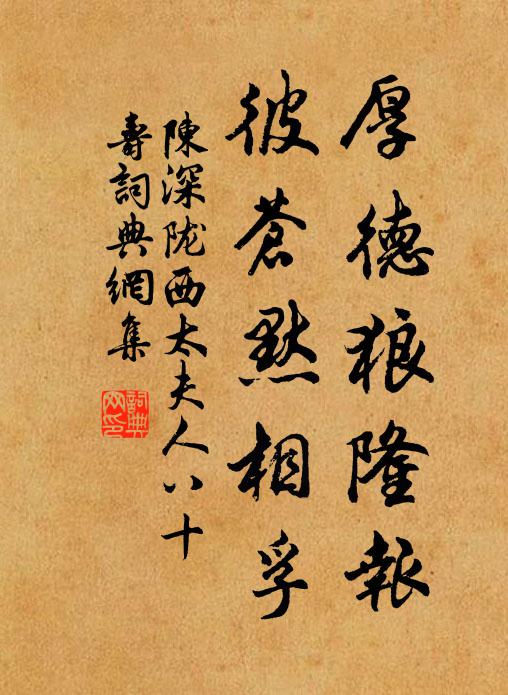 厚德狼隆報
彼蒼默相孚
陳深陇西太夫人八十
壽詞典網集
詞典网印